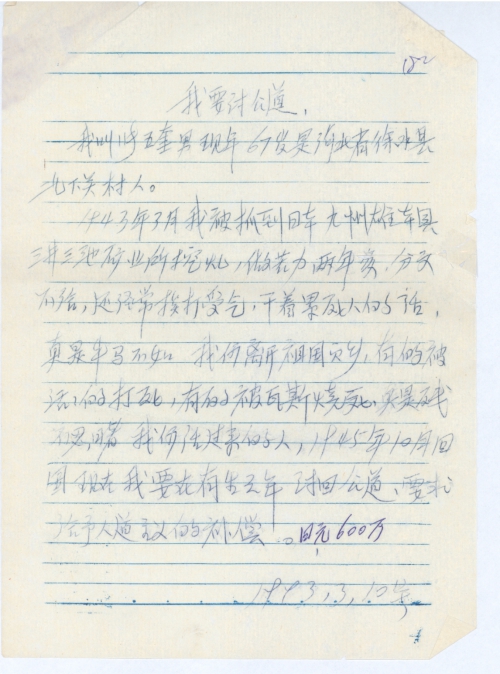 182
我要讨公道，
我叫许五奎男现年67岁是河北省徐水县
北下关村人。
1943年3月我被抓到日本九州雄本县
三井三池矿业所挖煤，做苦力两年余，分文
不给，还经常挨打受气，干着累死人的活，
真是牛马不如 我们离开祖国家乡，有的被
活活的打死，有的被瓦斯烧死，
我们活过来的人，1945年10月回
国 现在我要在有生之年 讨回公道、要求
给予人道主义的补偿。日元600万
1993.3.10号